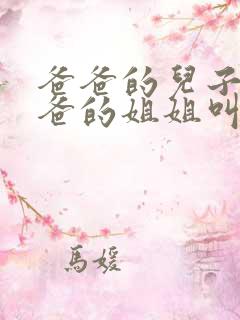 爸爸的兒子
爸的姐姐叫
馬媛